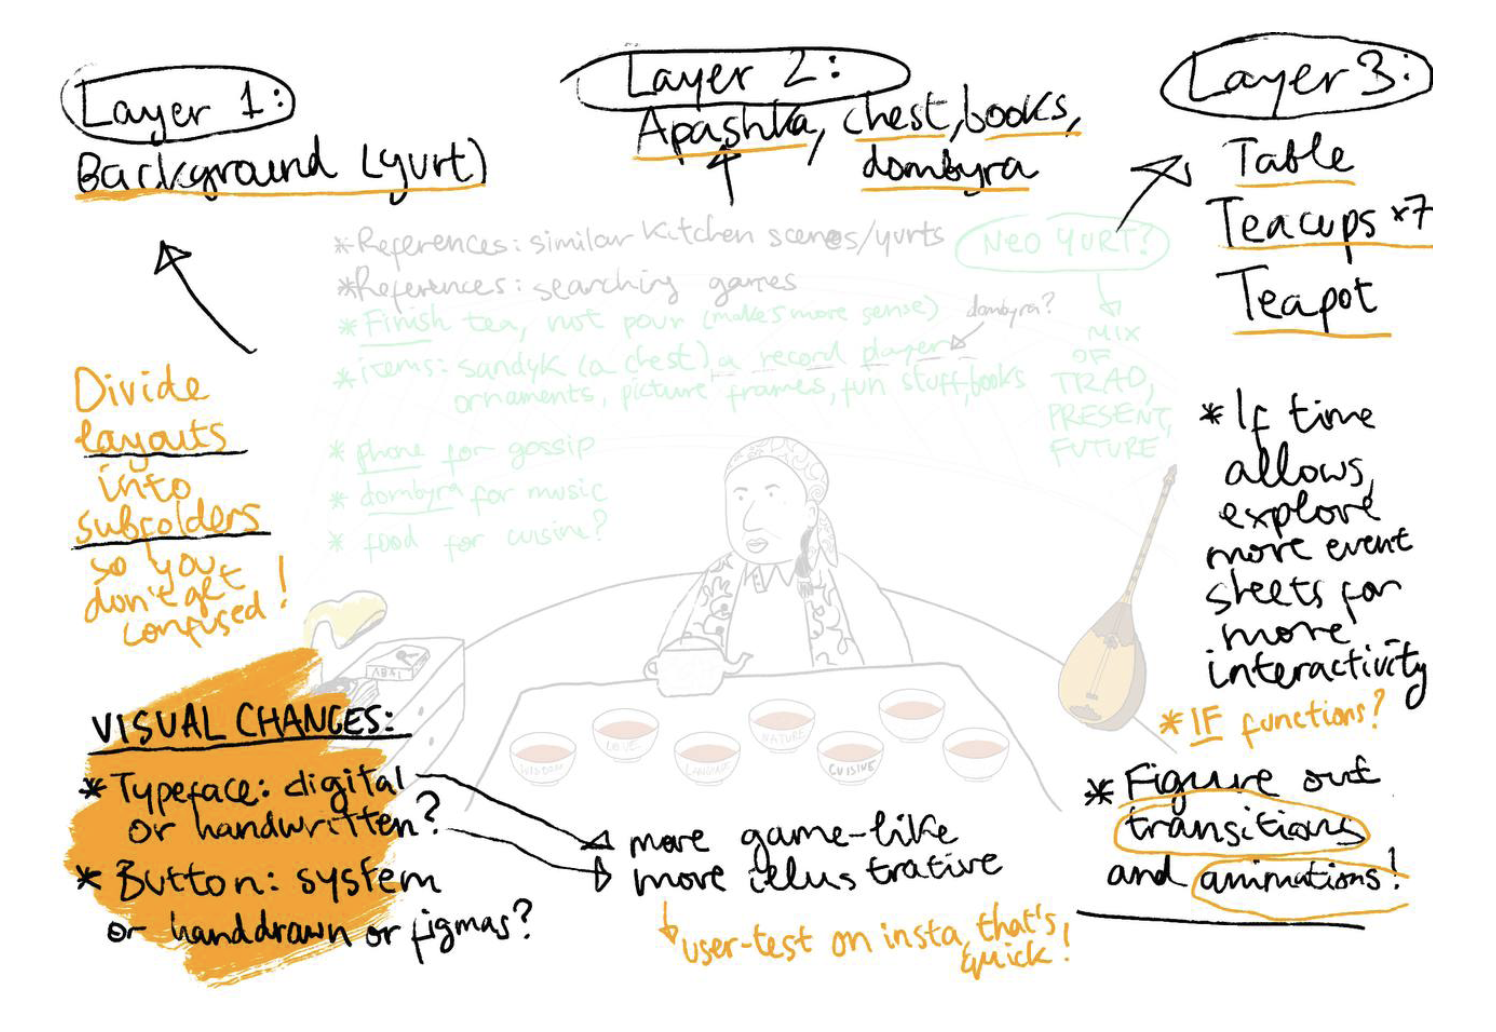 Layer 1:
Background (yurt)
Layer 2:
Apashka, chest, books,
dombyra
Layer 3:
Table
Teacups x7
Teapot
*References: similar kitchen scenes/yurts
*References: searching games
*Finish tea, not pour (makes more sense)
dombyra?
*items: sandyk (a chest) a record player
ornaments, picture frames, fun stuff, books
* phone for gossip
* dombyra for music
* food for cuisine?
NEO YURT?
MIX
OF
TRAD,
PRESENT,
FUTURE
Divide
layouts
into
subfolders
so you
don't get
confused!
* If time
allows,
explore
more event
sheets for
more
interactivity
*IF functions?
* Figure out
transitions
and animations!
ABAI
WISDOM
LOVE
LANGUAGE
NATURE
CUISINE
VISUAL CHANGES:
* Typeface: digital
or handwritten?
* Button: system
or handdrawn or figmas?
more game-like
more illustrative
user-test on insta, that's
quick!